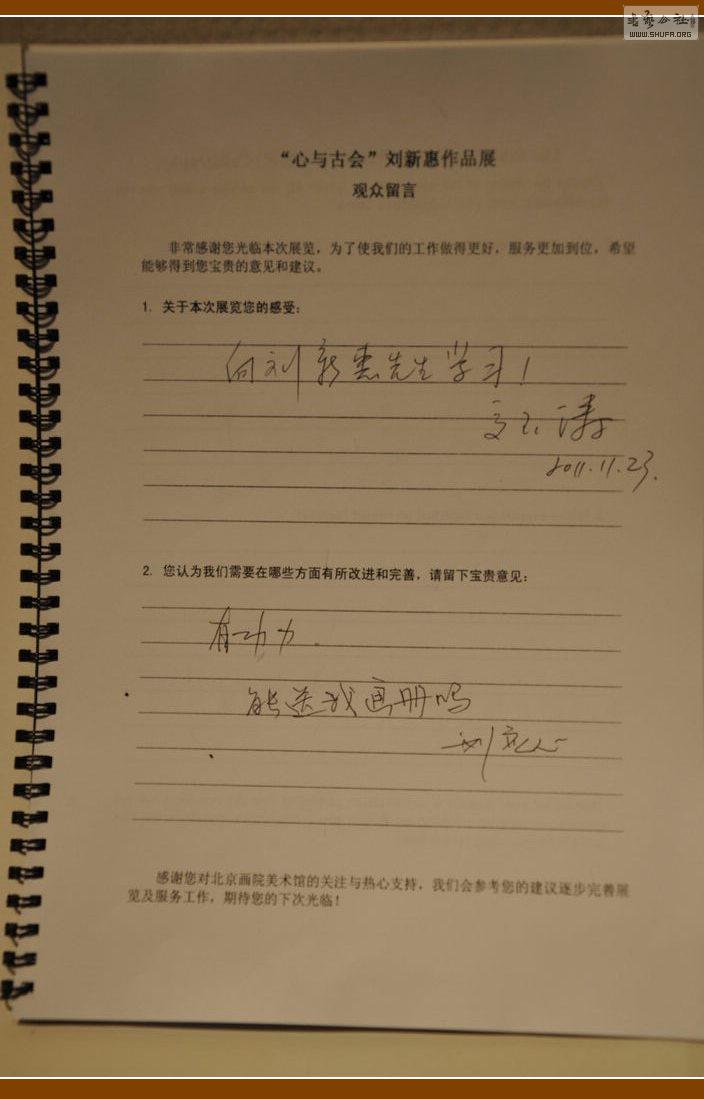 书艺公社
WWW.SHUFA.ORG
“心与古会”刘新惠作品展
观众留言
非常感谢您光临本次展览，为了使我们的工作做得更好，服务更加到位，希望
能够得到您宝贵的意见和建议。
1. 关于本次展览您的感受：
向刘新惠先生学习！
2011.11.23.
2. 您认为我们需要在哪些方面有所改进和完善，请留下宝贵意见：
有功力.
能送我画册吗
感谢您对北京画院美术馆的关注与热心支持，我们会参考您的建议逐步完善展
览及服务工作，期待您的下次光临！